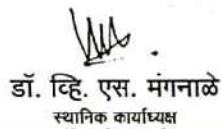 डॉ. व्हि. एस. मंगनाळे
स्थानिक कार्याध्यक्ष